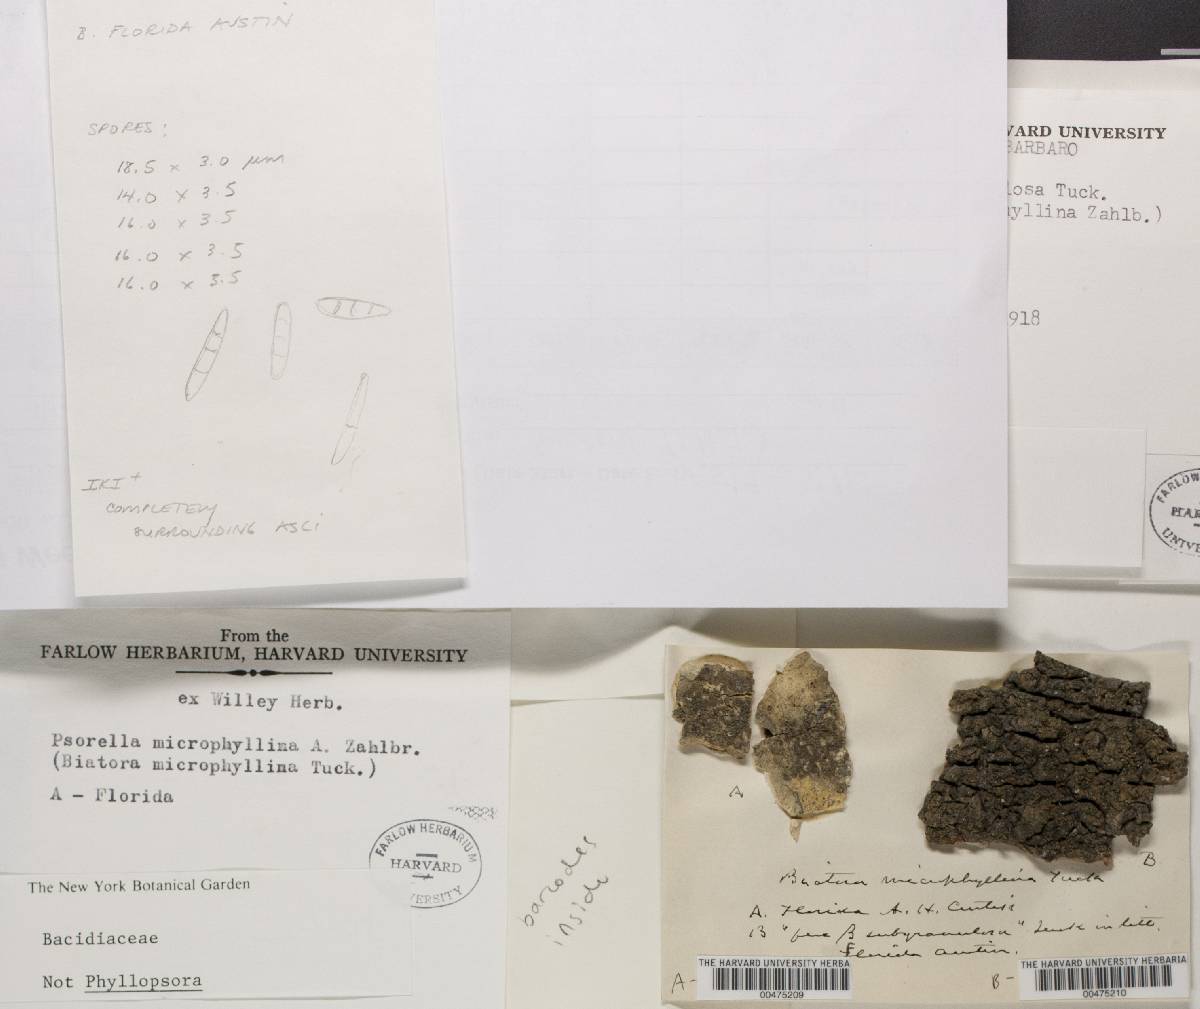 B. FLORIDA AUSTIN
SPORES:
18.5 x 3.0 µm
14.0 x 3.5
16.0 x 3.5
16.0 x 3.5
16.0 x 3.5
IKI +
COMPLETELY
SURROUNDING ASCI
VARD UNIVERSITY
BARBARO
losa Tuck.
yllina Zahlb.)
918
From the
FARLOW HERBARIUM, HARVARD UNIVERSITY
ex Willey Herb.
Psorella microphyllina A. Zahlbr.
(Biatora microphyllina Tuck.)
A - Florida
FARLOW HERBARIUM
HARVARD
VERSITY
The New York Botanical Garden
Bacidiaceae
Not Phyllopsora
barcodes
inside
A
B
Biatora microphyllina Tuck
A. Florida A. H. Curtiss
B " β subgranulosa" Tuck in litt.
Florida Austin.
A-
THE HARVARD UNIVERSITY HERBA
00475209
B-
THE HARVARD UNIVERSITY HERBARIA
00475210